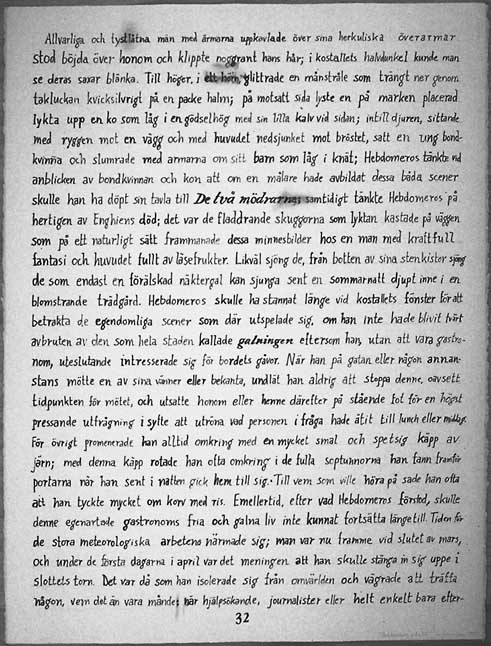 Allvarliga och tystlåtna män med ärmarna uppkavlade över sina herkuliska överarmar
stod böjda över honom och klippte noggrant hans hår; i kostallets halvdunkel kunde man
se deras saxar blänka. Till höger, i ett hörn, glittrade en månstråle som trängt ner genom
takluckan kvicksilvrigt på en packe halm; på motsatt sida lyste en på marken placerad
lykta upp en ko som låg i en gödselhög med sin lilla kalv vid sidan; intill djuren, sittande
med ryggen mot en vägg och med huvudet nedsjunket mot bröstet, satt en ung bond-
kvinna och slumrade med armarna om sitt barn som låg i knät; Hebdomeros tänkte vid
anblicken av bondkvinnan och kon att om en målare hade avbildat dessa båda scener
skulle han ha döpt sin tavla till De två mödrarna; samtidigt tänkte Hebdomeros på
hertigen av Enghiens död; det var de fladdrande skuggorna som lyktan kastade på väggen
som på ett naturligt sätt frammanade dessa minnesbilder hos en man med kraftfull
fantasi och huvudet fullt av läsefrukter. Likväl sjöng de, från botten av sina stenkistor sjöng
de som endast en förälskad näktergal kan sjunga sent en sommarnatt djupt inne i en
blomstrande trädgård. Hebdomeros skulle ha stannat länge vid kostallets fönster för att
betrakta de egendomliga scener som där utspelade sig, om han inte hade blivit tvärt
avbruten av den som hela staden kallade galningen eftersom han, utan att vara gastro-
nom, uteslutande intresserade sig för bordets gåvor. När han på gatan eller någon annan-
stans mötte en av sina vänner eller bekanta, undlät han aldrig att stoppa denne, oavsett
tidpunkten för mötet, och utsatte honom eller henne därefter på stående fot för en högst
pressande utfrågning i syfte att utröna vad personen i fråga hade ätit till lunch eller middag.
För övrigt promenerade han alltid omkring med en mycket smal och spetsig käpp av
järn; med denna käpp rotade han ofta omkring i de fulla soptunnorna han fann framför
portarna när han sent i natten gick hem till sig. Till vem som ville höra på sade han ofta
att han tyckte mycket om korv med ris. Emellertid, efter vad Hebdomeros förstod, skulle
denne egenartade gastronoms fria och galna liv inte kunnat fortsätta länge till. Tiden för
de stora meteorologiska arbetena närmade sig; man var nu framme vid slutet av mars,
och under de första dagarna i april var det meningen att han skulle stänga in sig uppe i
slottets torn. Det var då som han isolerade sig från omvärlden och vägrade att träffa
någon, vem det än vara månde; när hjälpsökande, journalister eller helt enkelt bara efter-
32